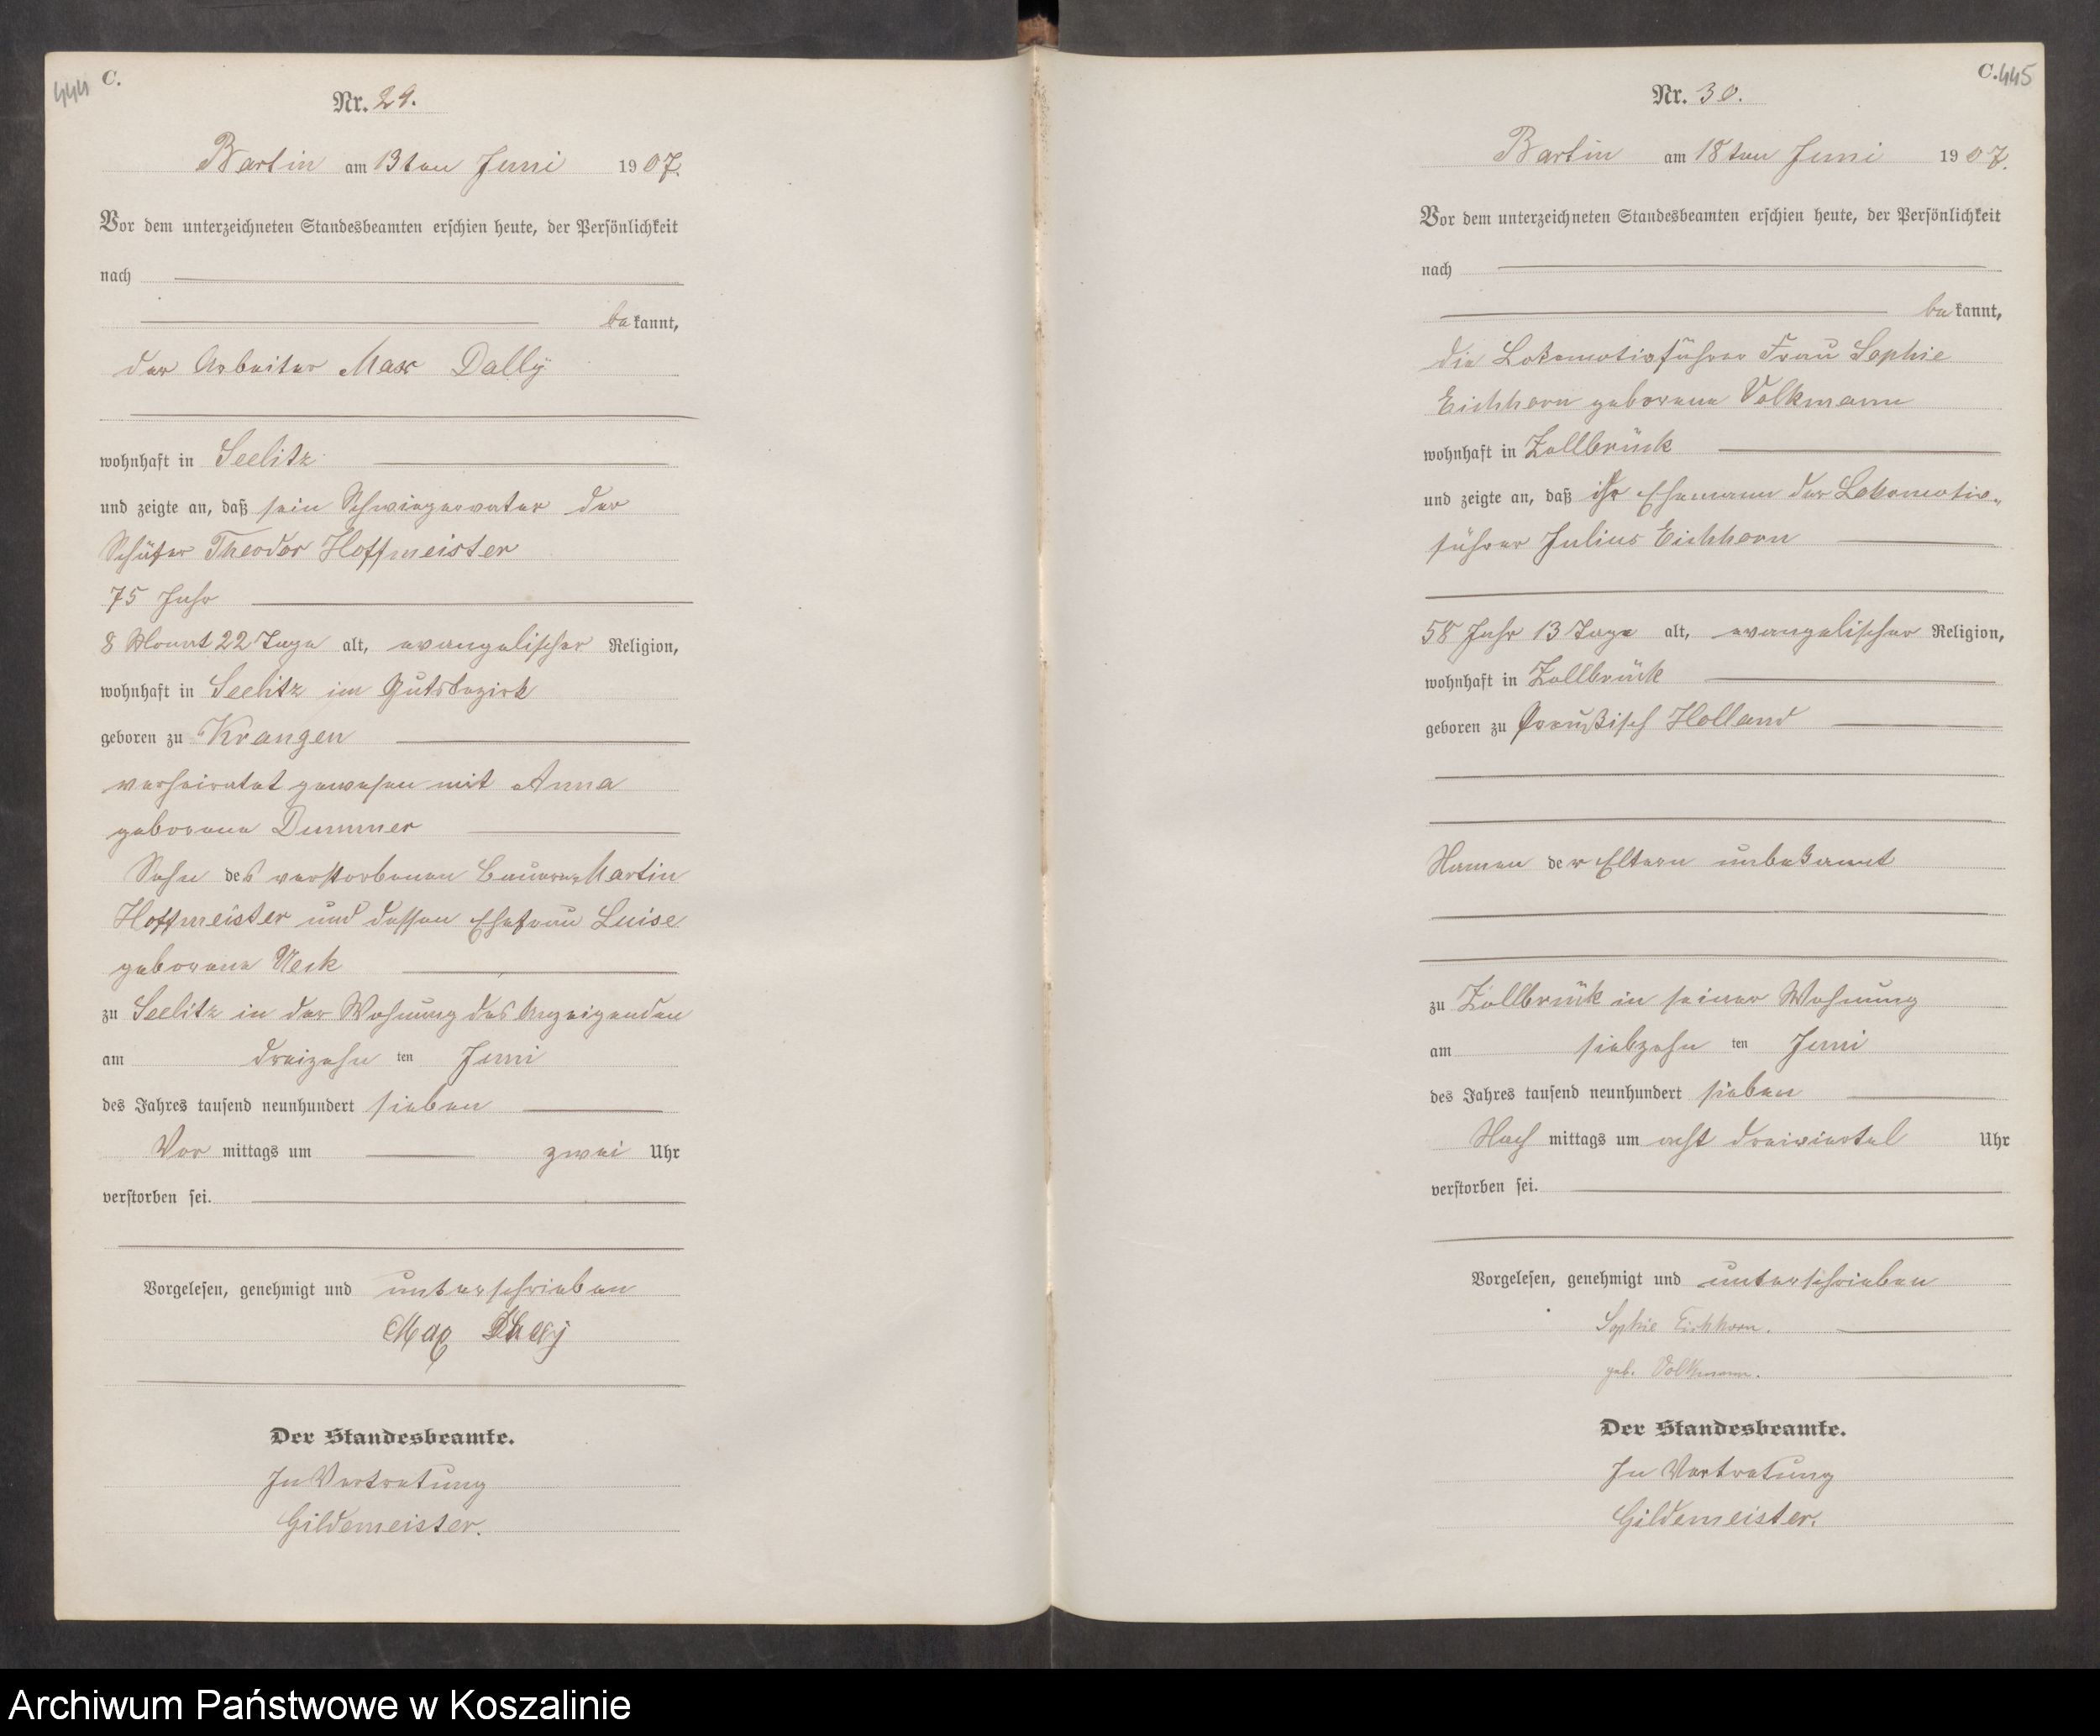 444 C.
Nr. 29.
Bartin am 13ten Juni 1907.
Vor dem unterzeichneten Standesbeamten erschien heute, der Persönlichkeit
nach
bekannt,
der Arbeiter Max Dally
wohnhaft in Seelitz
und zeigte an, daß sein Schwiegervater der
Schäfer Theodor Hoffmeister
75 Jahr
8 Monat 22 Tage alt, evangelischer Religion,
wohnhaft in Seelitz im Gutsbezirk
geboren zu Krangen
verheiratet gewesen mit Anna
geborene Dummer
Sohn des verstorbenen Bauern Martin
Hoffmeister und dessen Ehefrau Luise
geborene
zu Seelitz in der Wohnung des Anzeigenden
am dreizehn ten Juni
des Jahres tausend neunhundert sieben
Vor mittags um zwei Uhr
verstorben sei.
Vorgelesen, genehmigt und unterschrieben
Max Dally
Der Standesbeamte.
In Vertretung
Gildemeister.
C. 445
Nr. 30.
Bartin am 18ten Juni 1907.
Vor dem unterzeichneten Standesbeamten erschien heute, der Persönlichkeit
nach
bekannt,
die Lokomotivführer Frau Sophie
Eichhorn geborene Volkmann
wohnhaft in Zollbrück
und zeigte an, daß ihr Ehemann der Lokomotiv-
führer Julius Eichhorn
58 Jahr 13 Tage alt, evangelischer Religion,
wohnhaft in Zollbrück
geboren zu Preußisch Holland
Namen der Eltern unbekannt
zu Zollbrück in seiner Wohnung
am siebzehn ten Juni
des Jahres tausend neunhundert sieben
Nach mittags um acht dreiviertel Uhr
verstorben sei.
Vorgelesen, genehmigt und unterschrieben
Sophie Eichhorn.
geb. Volkmann.
Der Standesbeamte.
In Vertretung
Gildemeister.
Archiwum Państwowe w Koszalinie